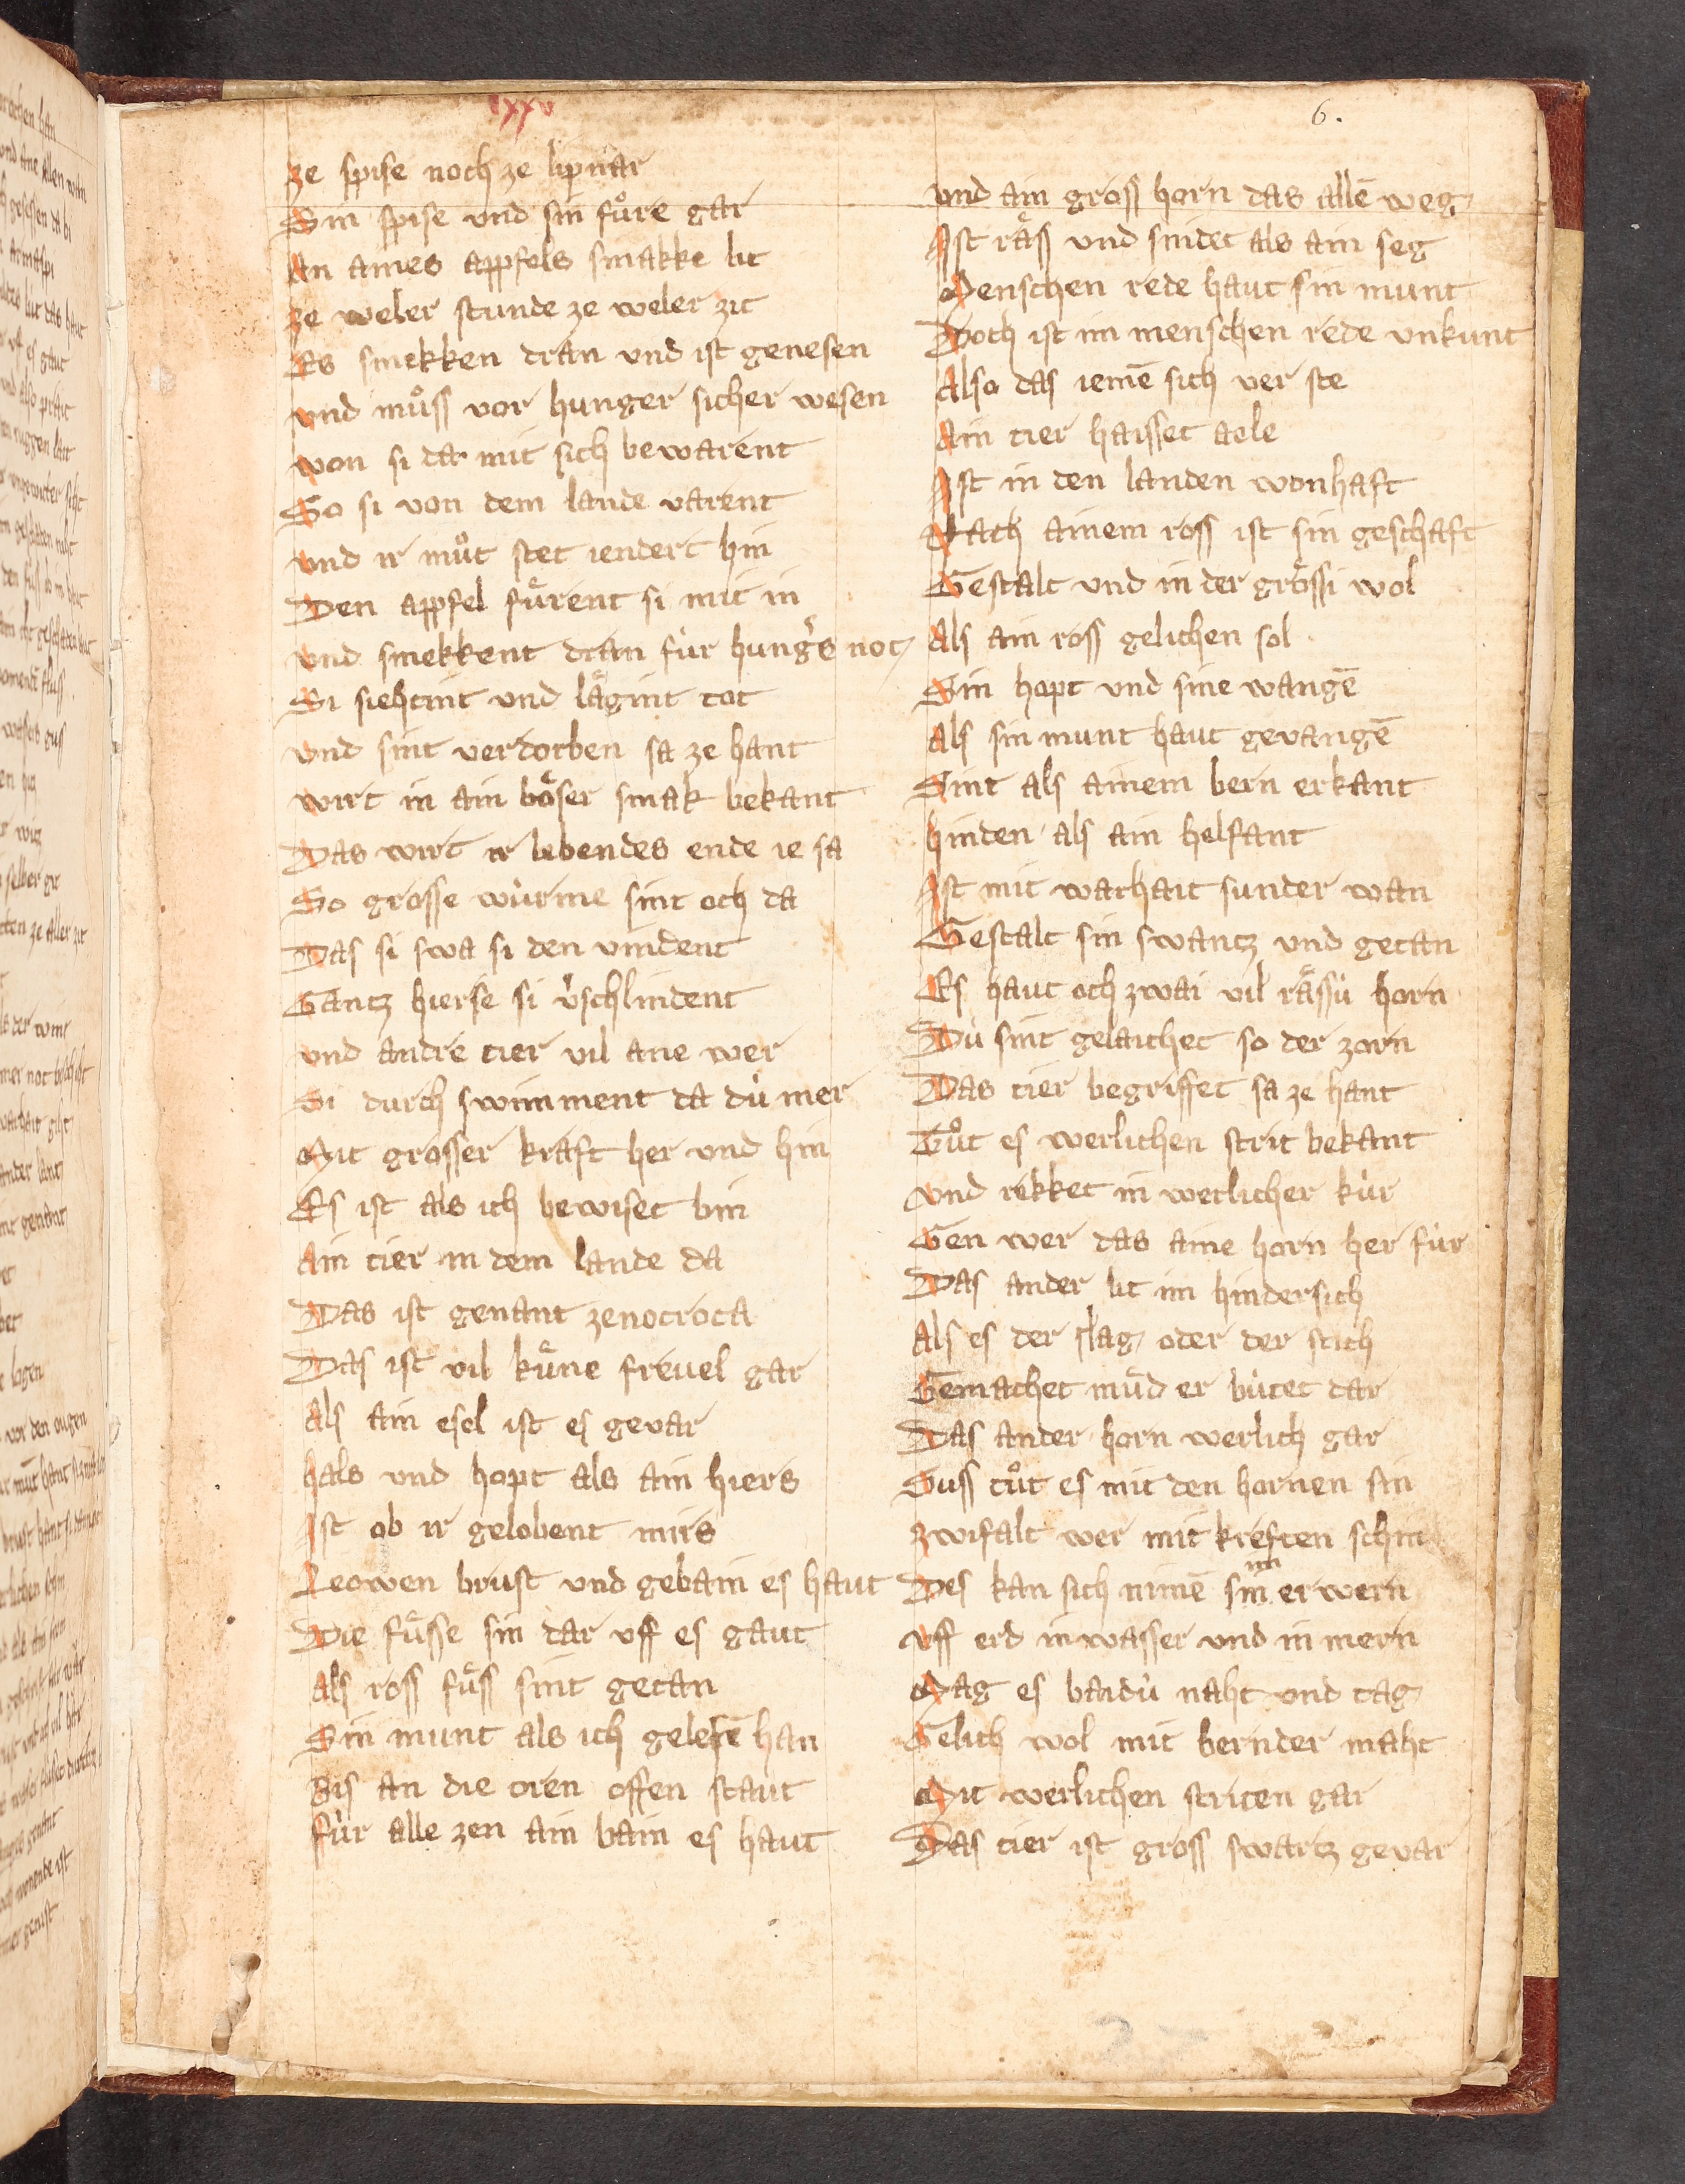 lxxv
6.
ze spise noch ze lipnar
Sin spise vnd sin fuͦre gar
An aines appfels smakke lit
ze weler stunde ze weler zit
Es smekken dran vnd ist genesen
vnd muͦss vor hunger sicher wesen
won si da mit sich bewarent
So si von dem lande varent
vnd ir muͦt stet iendert hin
Den appfel fuͤrent si mit in
vnd smekkent dran fúr hungˢs not
Si siehtint vnd laͤgint tot
vnd sint verdorben sa ze hant
wirt in ain boͤser smak bekant
Das wirt ir lebendes ende ie sa
So grosse wúrme sint och da
Das si swa si den vindent
Gantz hierse si vˢschlindent
vnd andre tier vil ane wer
Si durch swimment da dú mer
Mit grosser kraft her vnd hin
Es ist als ich bewiset bin
Ain tier in dem lande da
Das ist genant zenocroca
Das ist vil kuͤne freuel gar
Als ain esel ist es gevar
hals vnd hopt als ain hiers
Ist ob ir gelobent mirs
Leowen brust vnd gebain es haut
Die fuͤsse sin dar vff es gaut
Als ross fuͤss sint getan
Sin munt als ich gelesē han
Bis an die oren offen staut
fúr alle zen ain bain es haut
vnd ain gross horn das allē weg
Ist raͤss vnd snidet als ain seg
Menschen rede haut sin munt
Doch ist im menschen rede vnkunt
Also das iemē sich ver ste
Ain tier haisset aele
Ist in den landen wonhaft
Nach ainem ross ist sin geschaft
Gestalt vnd in der groͤssi wol
Als ain ross gelichen sol
Sin hopt vnd sine wangē
Als sin munt haut gevangē
Sint als ainem bern erkant
hinden als ain helfant
Ist mit warhait sunder wan
Gestalt sin swantz vnd getan
Es haut och zwai vil raͤssú horn
Dú sint gelaichet so der zorn
Das tier begriffet sa ze hant
Tuͦt es werlichen strit bekant
vnd rekket in werlicher kúr
Gen wer das aine horn her fúr
Das ander lit im hindersich
Als es der slag oder der stich
Gemachet muͤd er bútet dar
Das ander horn werlich gar
Suss tuͦt es mit den hornen sin
zwifalt wer mit kreften schin
Des kan sich nimē sin im erwern
vff erd in wasser vnd in mern
Mag es baidú naht vnd tag
Gelich wol mit bernder maht
Mit werlichen striten gar
Das tier ist gross swartz gevar